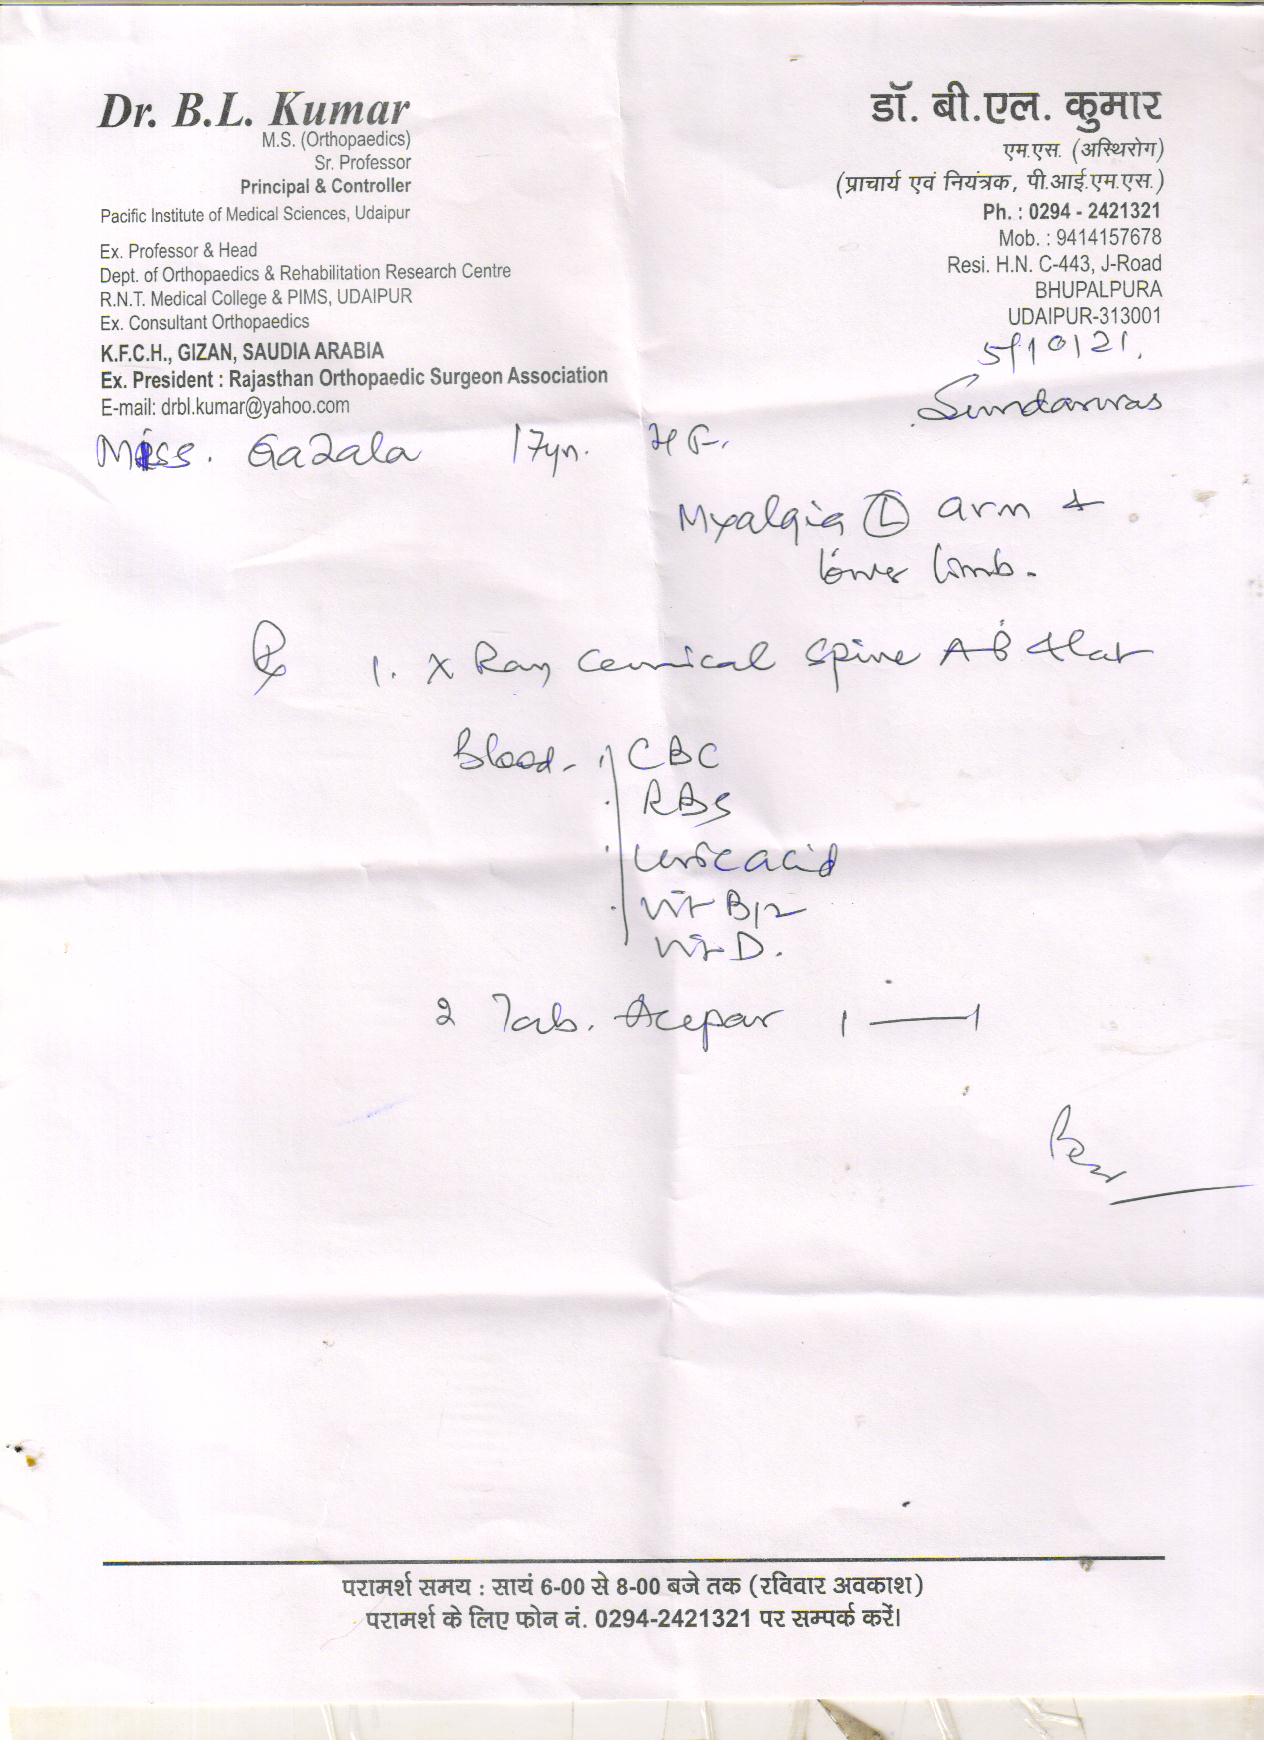 Dr. B.L. Kumar
M.S. (Orthopaedics)
Sr. Professor
Principal & Controller
Pacific Institute of Medical Sciences, Udaipur
Ex. Professor & Head
Dept. of Orthopaedics & Rehabilitation Research Centre
R.N.T. Medical College & PIMS, UDAIPUR
Ex. Consultant Orthopaedics
K.F.C.H., GIZAN, SAUDIA ARABIA
Ex. President : Rajasthan Orthopaedic Surgeon Association
E-mail: drbl.kumar@yahoo.com
डॉ. बी.एल. कुमार
एम.एस. (अस्थिरोग)
(प्राचार्य एवं नियंत्रक, पी.आई.एम.एस.)
Ph. : 0294 - 2421321
Mob. : 9414157678
Resi. H.N. C-443, J-Road
BHUPALPURA
UDAIPUR-313001
5/10/21.
Sundarwas
Miss. Gazala 17yr. F.
Myalgia Ⓛ arm +
lower limb.
℞ 1. X Ray Cervical Spine AP & lat
Blood - CBC
RBS
Uric acid
Vit B12
Vit D.
2 Tab. Acepar 1 — 1
परामर्श समय : सायं 6-00 से 8-00 बजे तक (रविवार अवकाश)
परामर्श के लिए फोन नं. 0294-2421321 पर सम्पर्क करें।